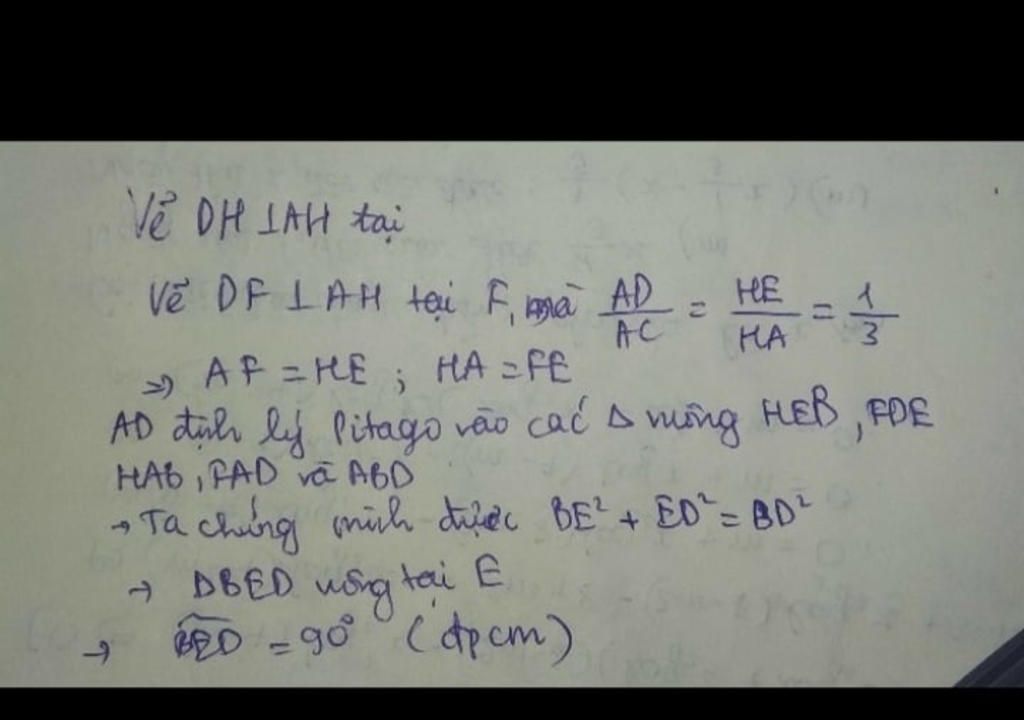 Vẽ DH ⊥ AH tại
Vẽ DF ⊥ AH tại F, mà AD/AC = HE/HA = 1/3
=> AF = HE ; HA = FE
AD định lý Pitago vào các Δ vuông HEB, FDE
HAB, FAD và ABD
→ Ta chứng minh được BE² + ED² = BD²
→ ΔBED vuông tại E
→ BED = 90° (đpcm)